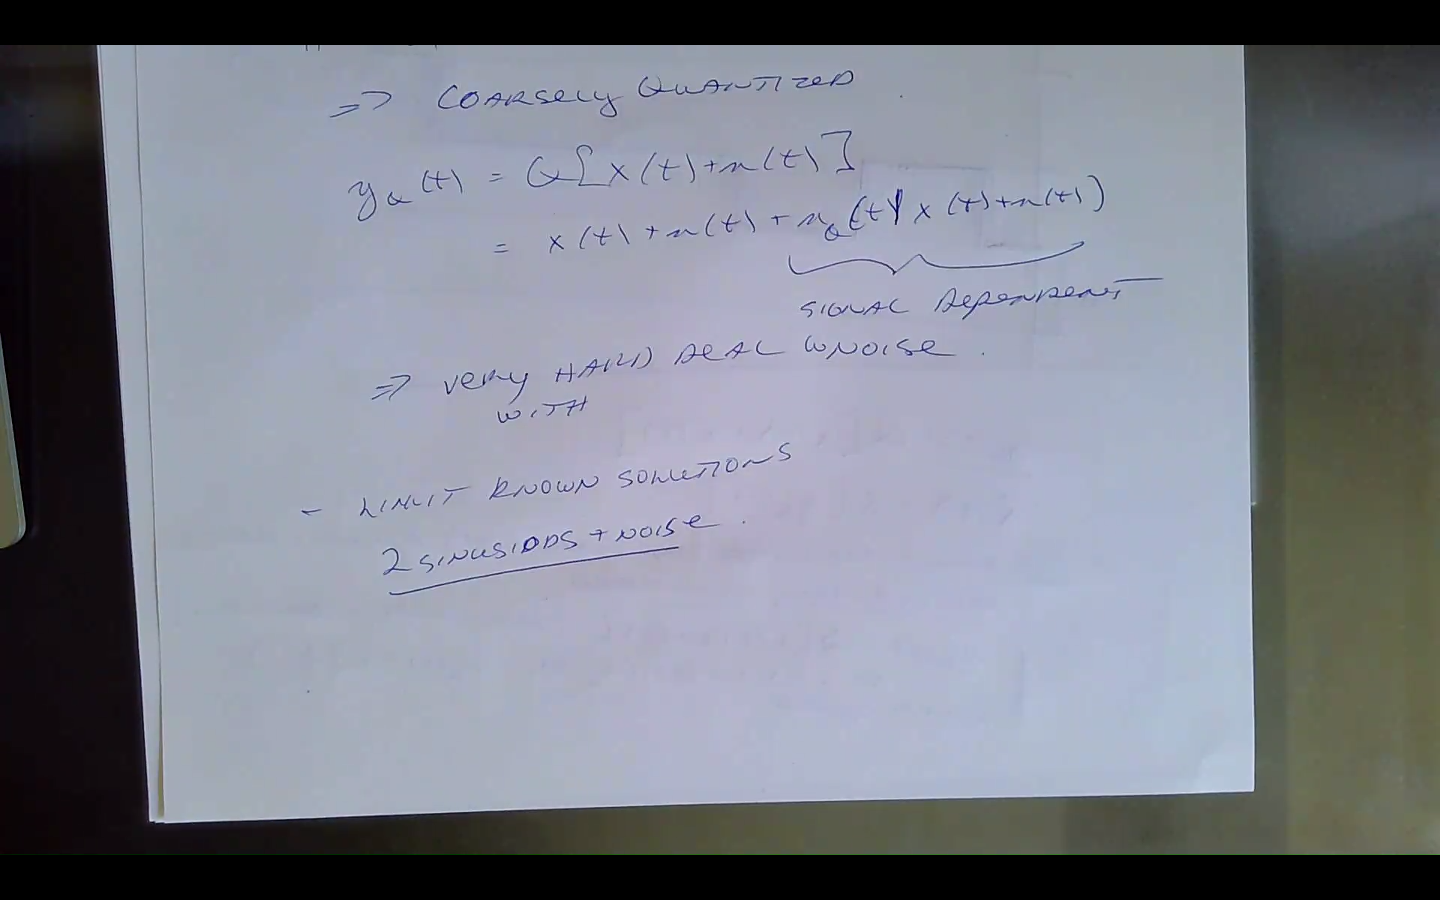 ⇒ COARSELY QUANTIZED
y_Q(t) = Q[x(t)+n(t)]
= x(t)+n(t)+n_Q(t| x(t)+n(t))
SIGNAL DEPENDENT
⇒ VERY HARD DEAL W NOISE.
WITH
- LIMIT KNOWN SOLUTIONS
2 SINUSIODS + NOISE.